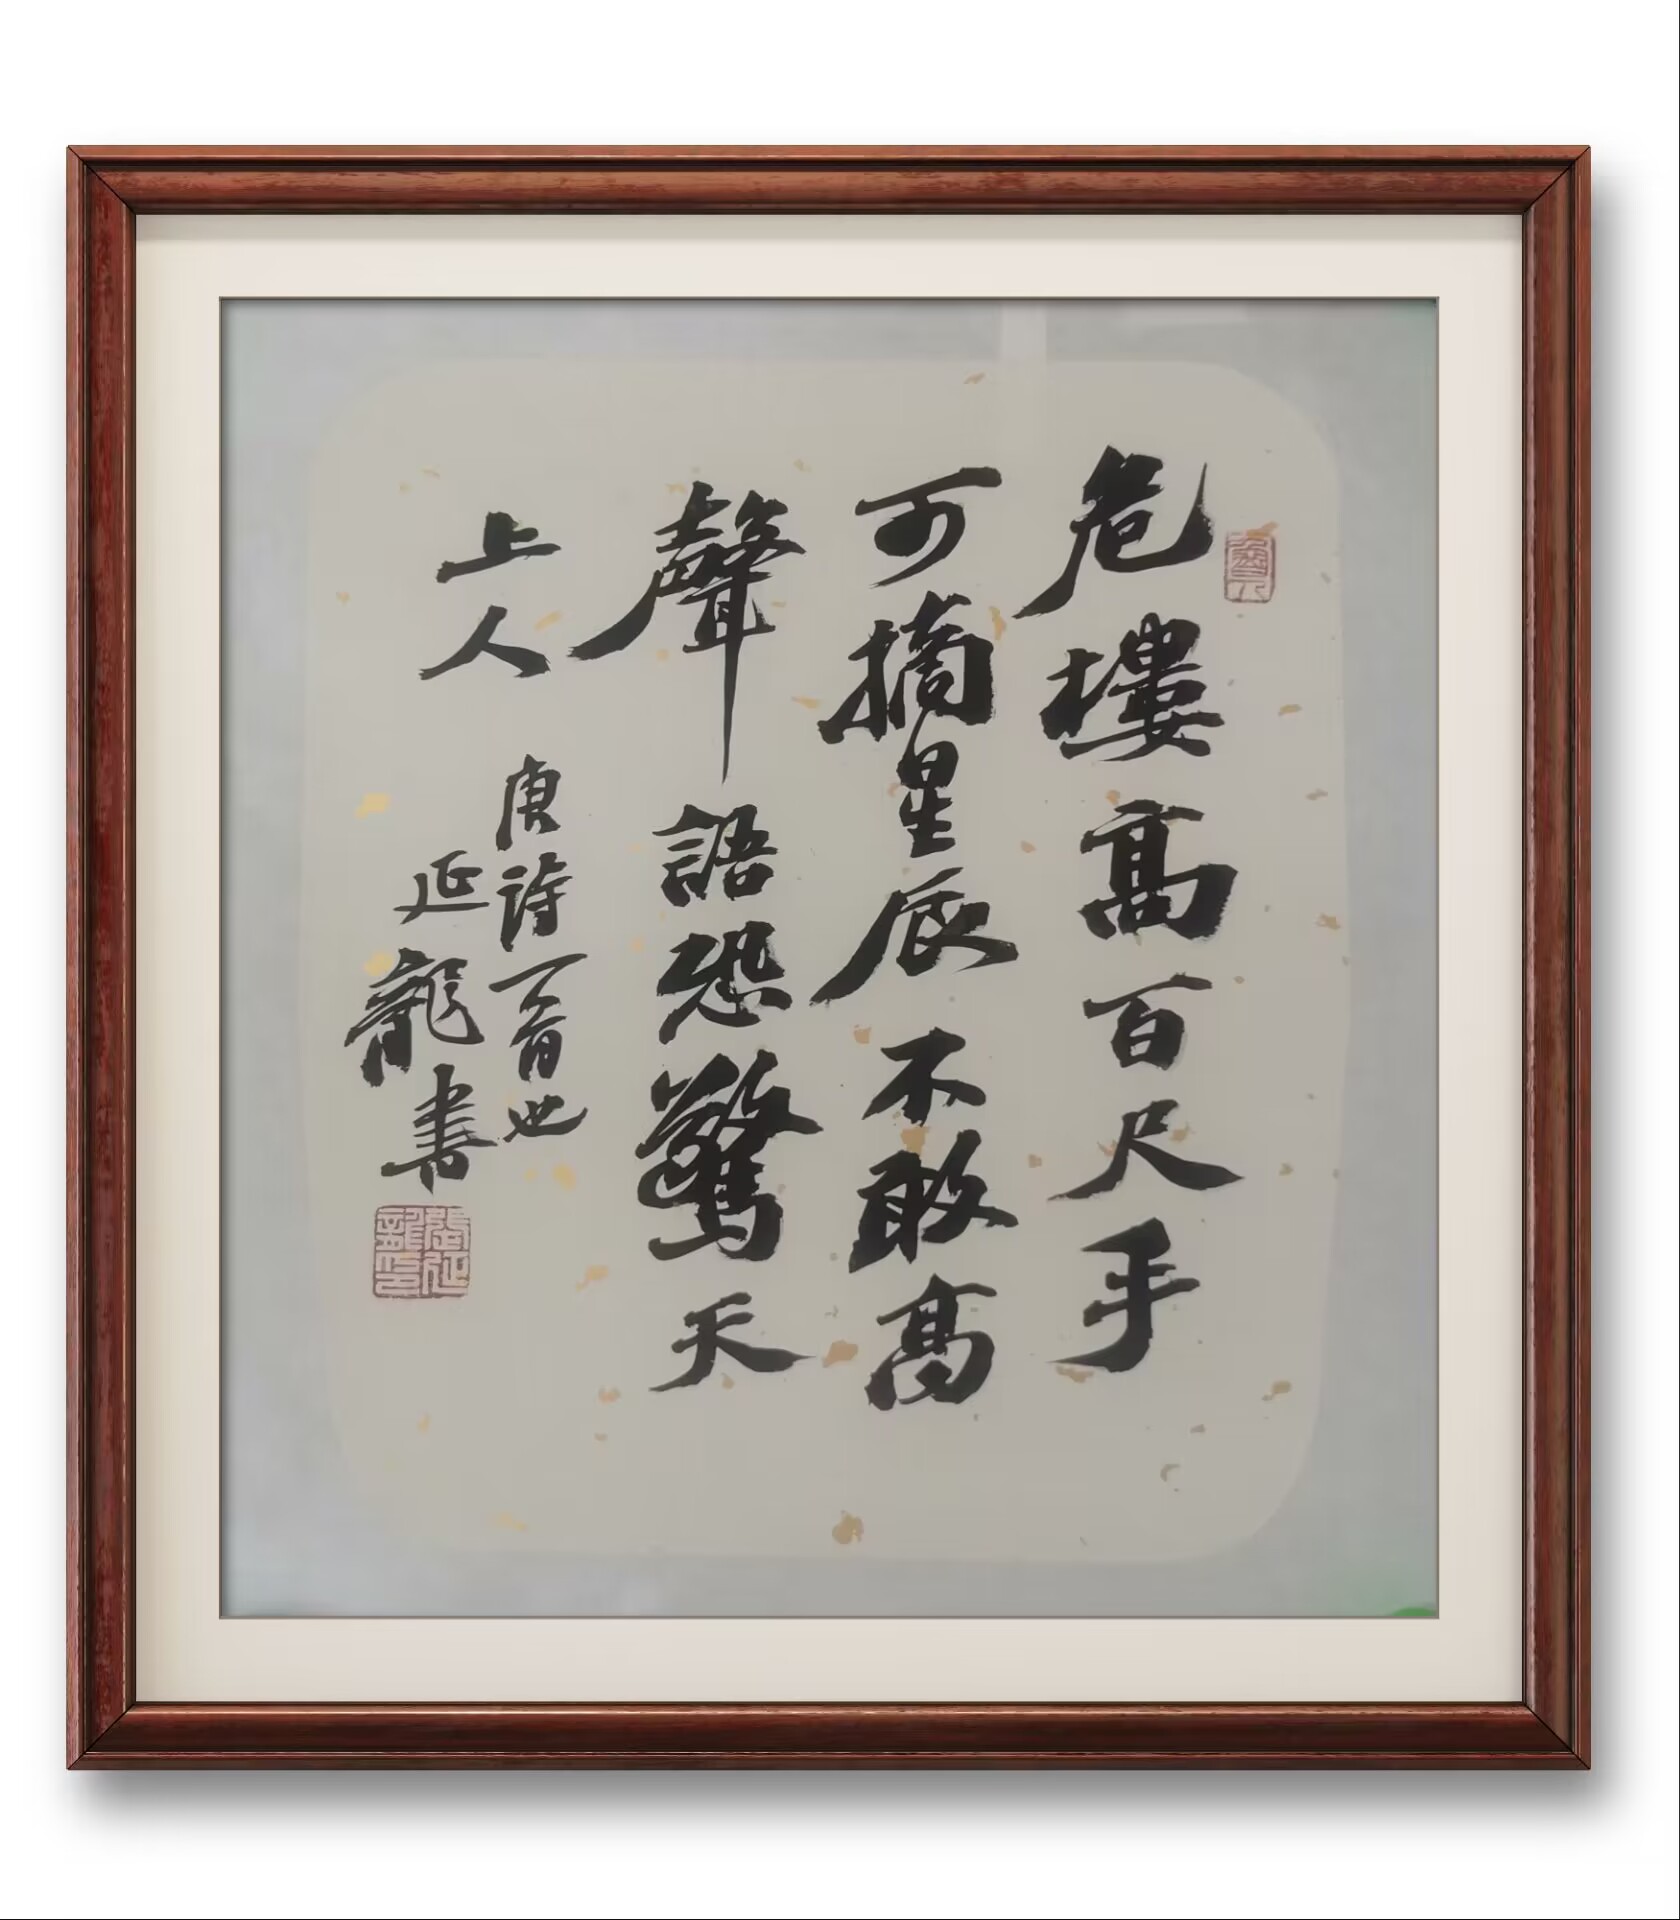 危樓高百尺手
可摘星辰不敢高
聲語恐驚天
上人
唐詩一首也
延龍書